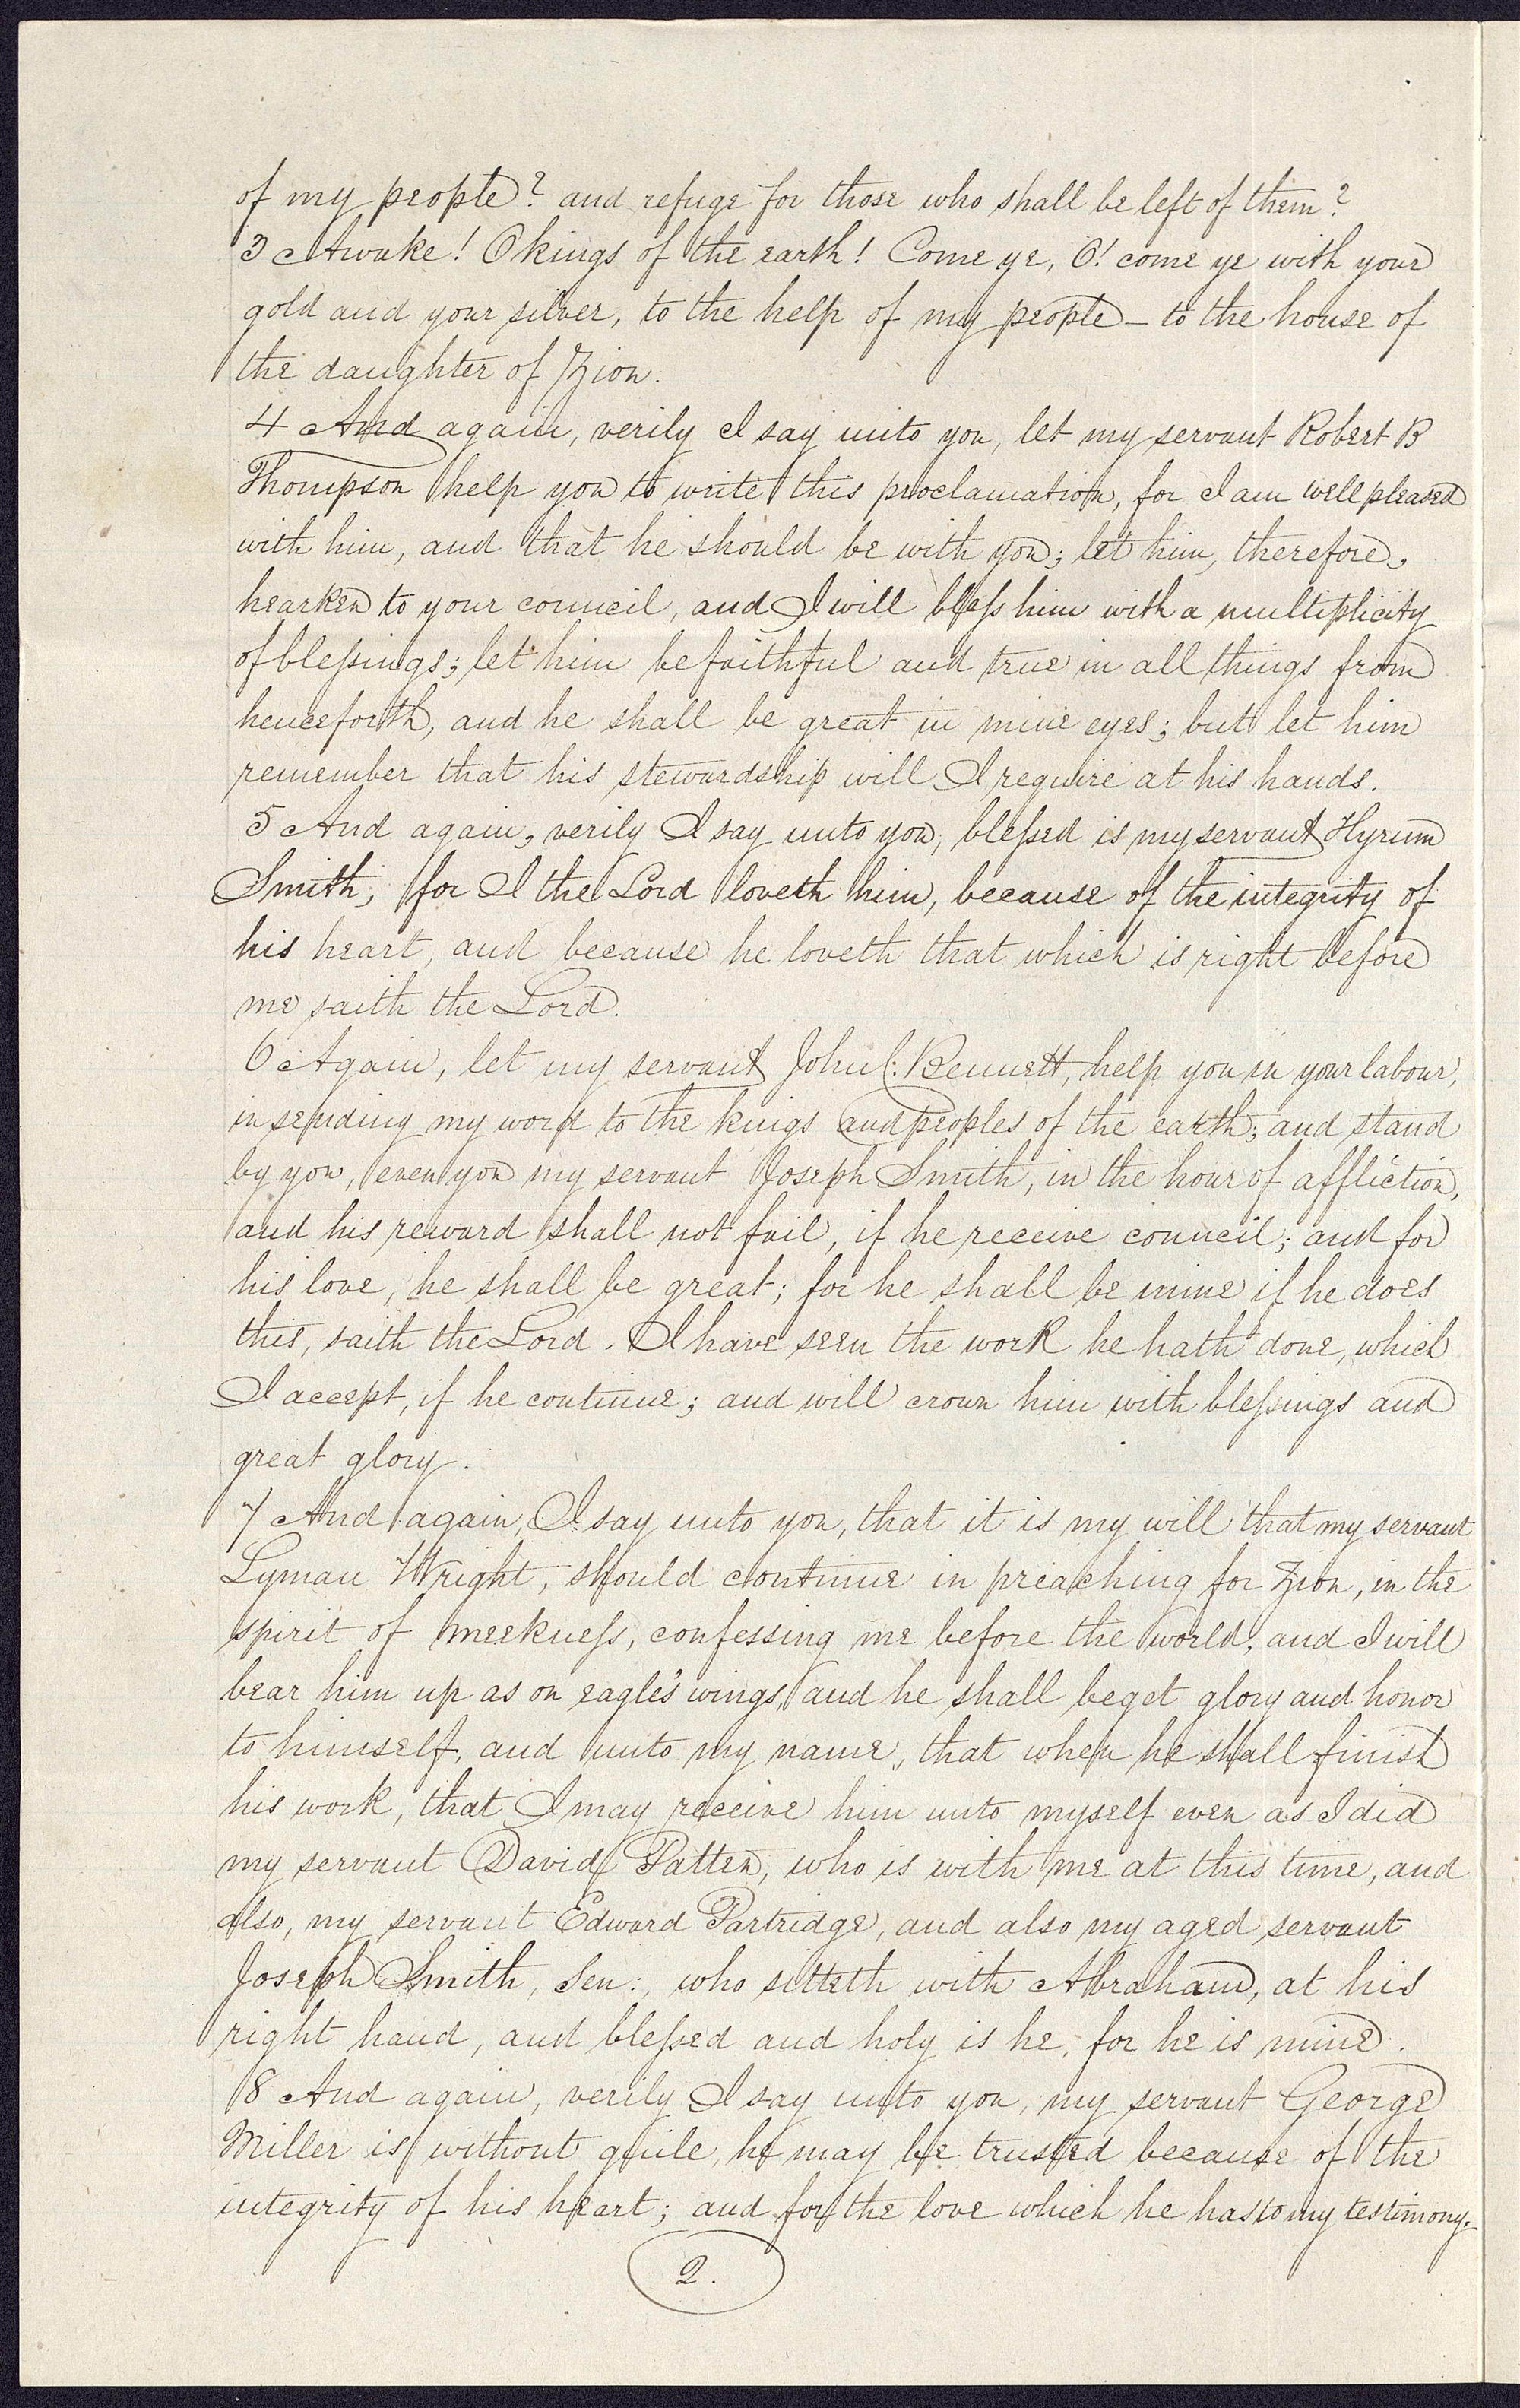 of my people? and refuge for those who shall be left of them?
3 Awake! O kings of the earth! Come ye, O! come ye with your
gold and your silver, to the help of my people – to the house of
the daughter of Zion.
4 And again, verily I say unto you, let my servant Robert B
Thompson help you to write this proclamation, for I am well pleased
with him, and that he should be with you; let him, therefore,
hearken to your council, and I will bless him with a multiplicity
of blessings; let him be faithful and true in all things from
henceforth, and he shall be great in mine eyes; but let him
remember that his stewardship will I require at his hands.
5 And again, verily I say unto you, blessed is my servant Hyrum
Smith; for I the Lord loveth him, because of the integrity of
his heart, and because he loveth that which is right before
me saith the Lord.
6 Again, let my servant John C: Bennett, help you in your labour,
in sending my word to the kings and peoples of the earth; and stand
by you, even you my servant Joseph Smith, in the hour of affliction,
and his reward shall not fail, if he receive council; and for
his love, he shall be great; for he shall be mine if he does
this, saith the Lord. I have seen the work he hath done, which
I accept, if he continue; and will crown him with blessings and
great glory.
7 And again, I say unto you, that it is my will that my servant
Lyman Wright, should continue in preaching for Zion, in the
spirit of meekness, confessing me before the world, and I will
bear him up as on eagle's wings, and he shall beget glory and honor
to himself, and unto my name, that when he shall finish
his work, that I may receive him unto myself even as I did
my servant David Patten, who is with me at this time, and
also, my servant Edward Partridge, and also my aged servant
Joseph Smith, Sen:, who sitteth with Abraham, at his
right hand, and blessed and holy is he, for he is mine.
8 And again, verily I say unto you, my servant George
Miller is without guile, he may be trusted because of the
integrity of his heart; and for the love which he has to my testimony.
2.